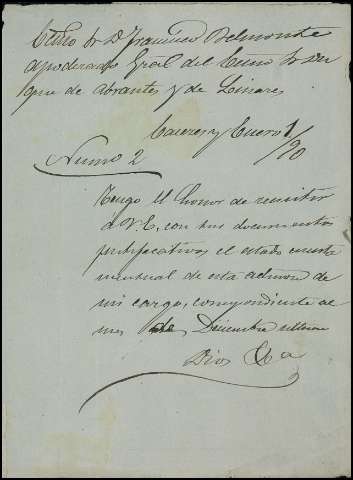 Sr Dn Francisco Belmonte
apoderado Gral del Exmo Sr Du
que de Abrantes y de Linares
Caceres y Enero 1/90
Numo 2
Tengo el honor de remitir
a V.E. con sus documentos
justificativos el estado cuenta
mensual de esta admon de
mi cargo, correspondiente al
mes de Diciembre ultimo
Dios &a